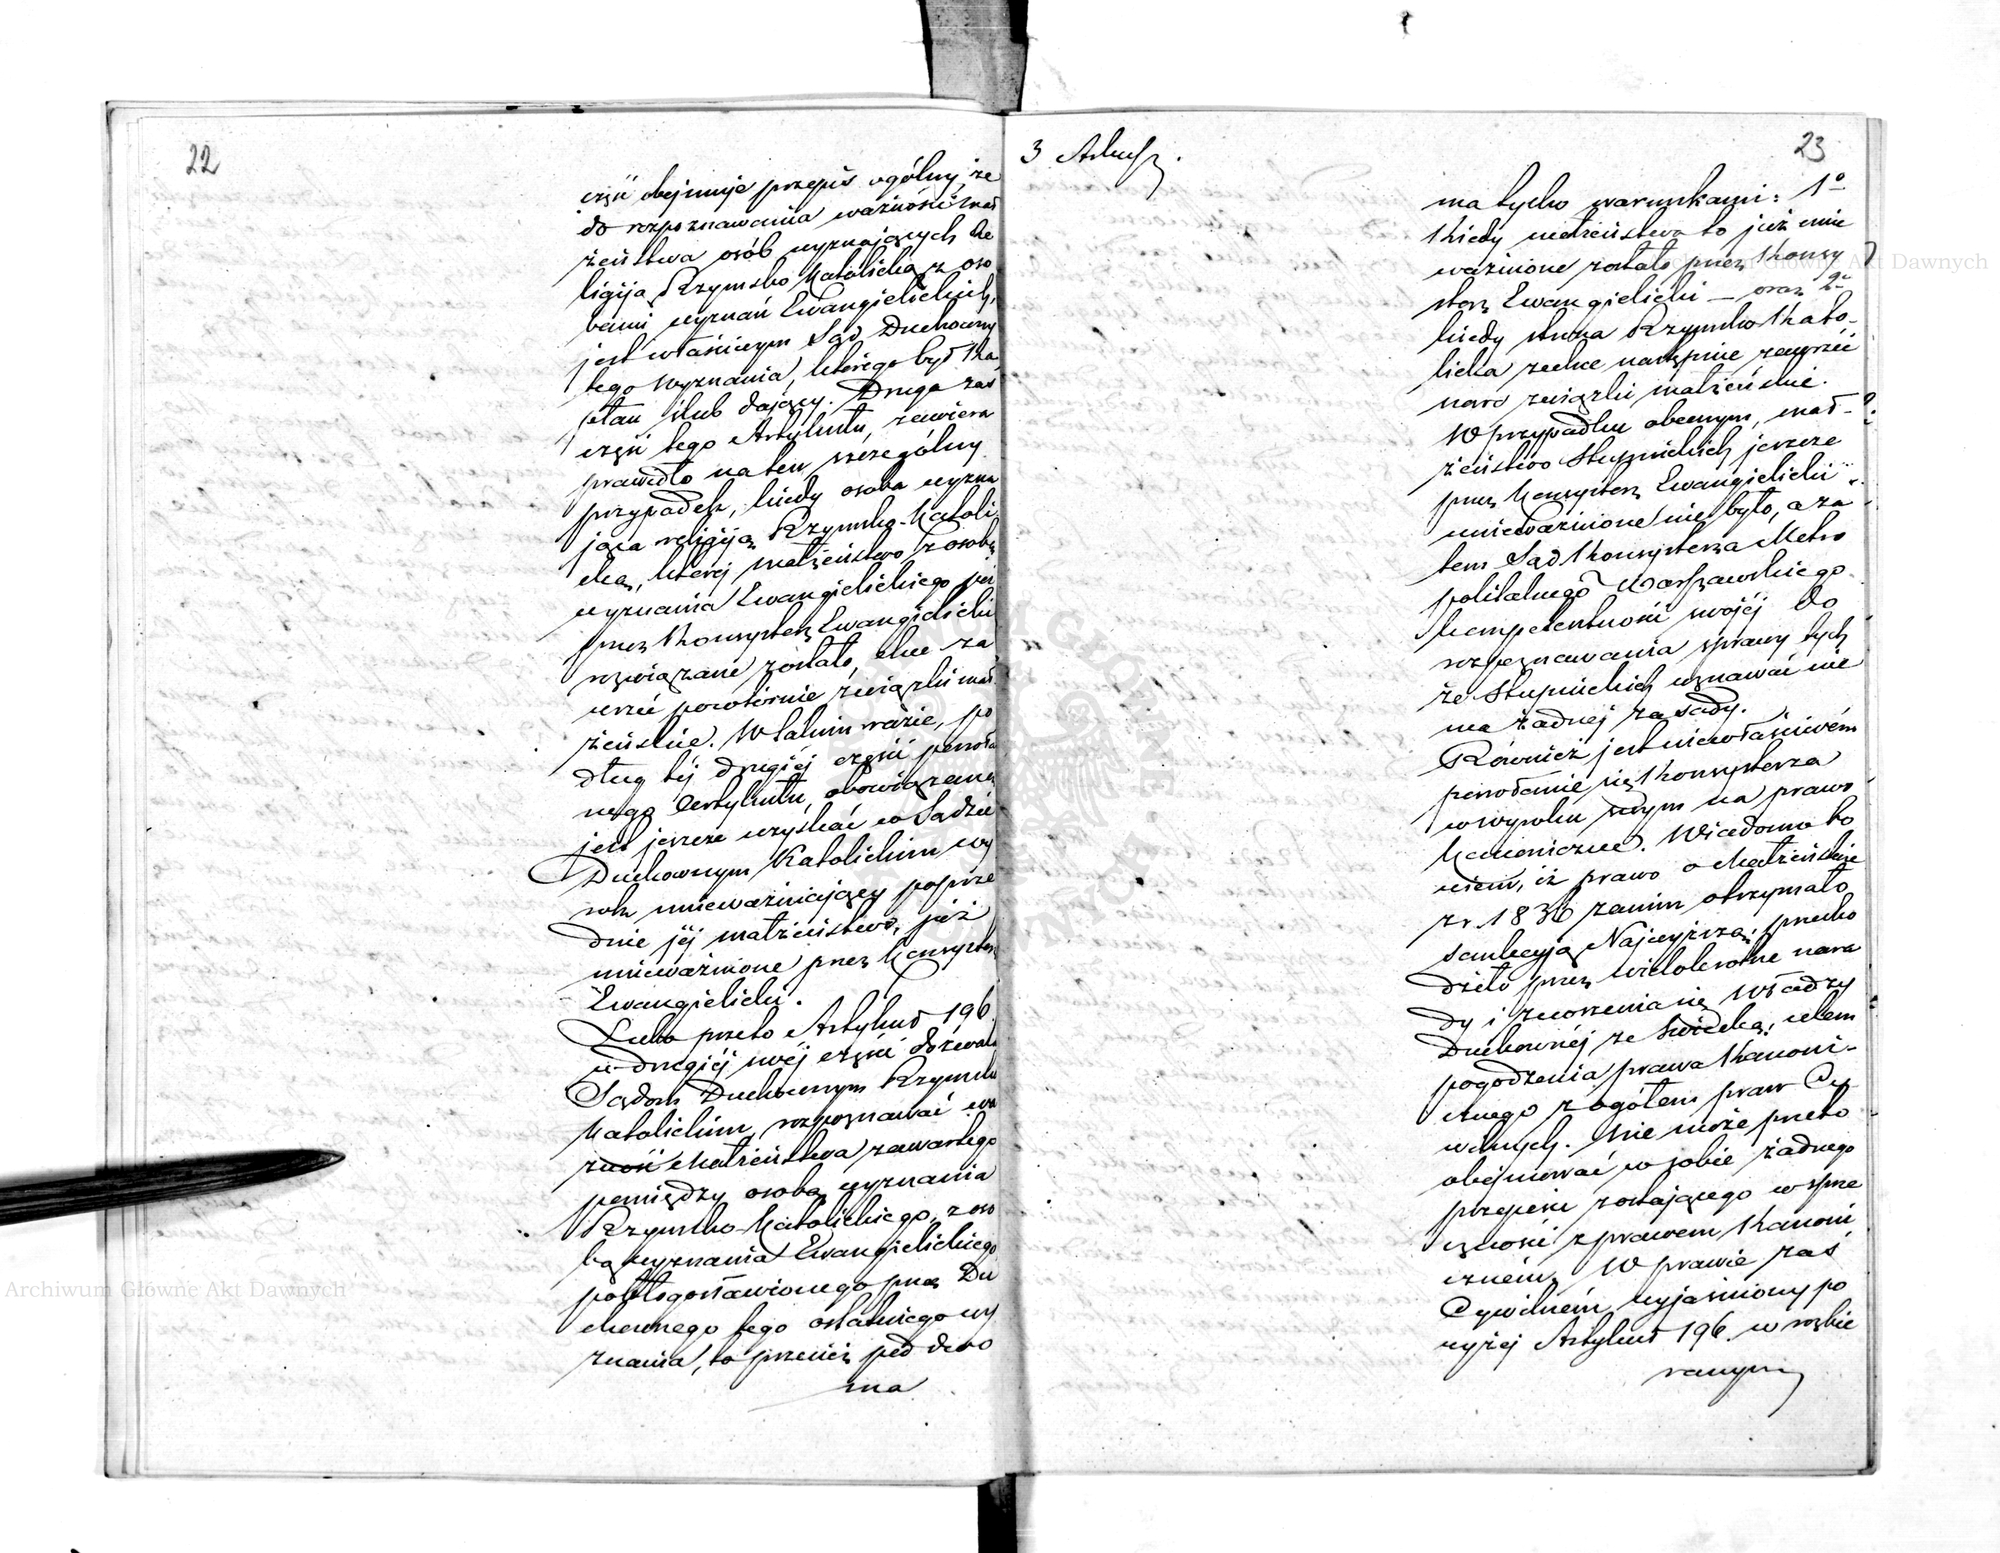 22
częśi obejmuje przepis ogólny, że
do rozpoznawania ważności mał
żeństwa osób wyznających Re
ligiją Rzymsko Katolicką z oso
bami wyznań Ewangielickich,
jest właściwym Sąd Duchowny
tego wyznania, którego był Ka
płan ślub dający. Druga zaś
część tego Artykułu, zawiera
prawidło na ten szczególny
przypadek, kiedy osoba wyzna
jąca religiją Rzymsko-Katoli
cką, której małżeństwo z osobą
wyznania Ewangielickiego już
przez Konsystorz Ewangielicki
rozwiązane zostało, chce za
wrzeć powtórnie związki mał
żeńskie. W takim razie, po
dług téj drugiéj części powoła
nego Artykułu, obowiązaną
jest jeszcze uzyskać w Sądzie
Duchownym Katolickim wy
rok unieważniający poprze
dnie jéj małżeństwo, już
unieważnione przez Konsystorz
Ewangielicki.
Lubo przeto Artykuł 196
w drugiéj swéj części dozwala
Sądom Duchownym Rzymsko
Katolickim, rozpoznawać wa
żność Małżeństwa zawartego
pomiędzy osobą wyznania
Rzymsko-Katolickiego, z oso
bą wyznania Ewangielickiego
pobłogosławionego przez Du
chownego tego ostatniego wy
znania, to przecież pod dwo
ma
3 Arkusz.
23
ma tylko warunkami: 1º
Kiedy małżeństwo to już unie
ważnione zostało przez Konsy
storz Ewangielicki — oraz 2º
kiedy strona Rzymsko Kato-
licka zechce następnie zawrzeć
nowe związki małżeńskie.
W przypadku obecnym, mał-
żeństwo Słupnickich jeszcze
przez Konsystorz Ewangielicki
unieważnione nie było, a za
tem Sąd Konsystorza Metro
politalnego Warszawskiego
kompetentności swojéj do
rozpoznawania sprawy tych
że Słupnickich uznawać nie
ma żadnej zasady.
Również jest niewłaściwém
powołanie się Konsystorza
w wyroku swym na prawo
Kanoniczne. Wiadomo bo
wiem, iż prawo o Małżeństwie
z r. 1836 zanim otrzymało
sankcyją Najwyższą, przecho
dziło przez wielokrotne nara
dy i znoszenia się Władzy
Duchownéj ze świecką, celem
pogodzenia prawa Kanoni-
cznego z ogółem praw Cy
wilnych. Nie może przeto
obejmować w sobie żadnego
przepisu zostającego w sprze
czności z prawem Kanoni
czném. W prawie zaś
Cywilném wyjaśniony po
wyżej Artykuł 196. w rozbie
ranym
Archiwum Główne Akt Dawnych
Archiwum Główne Akt Dawnych